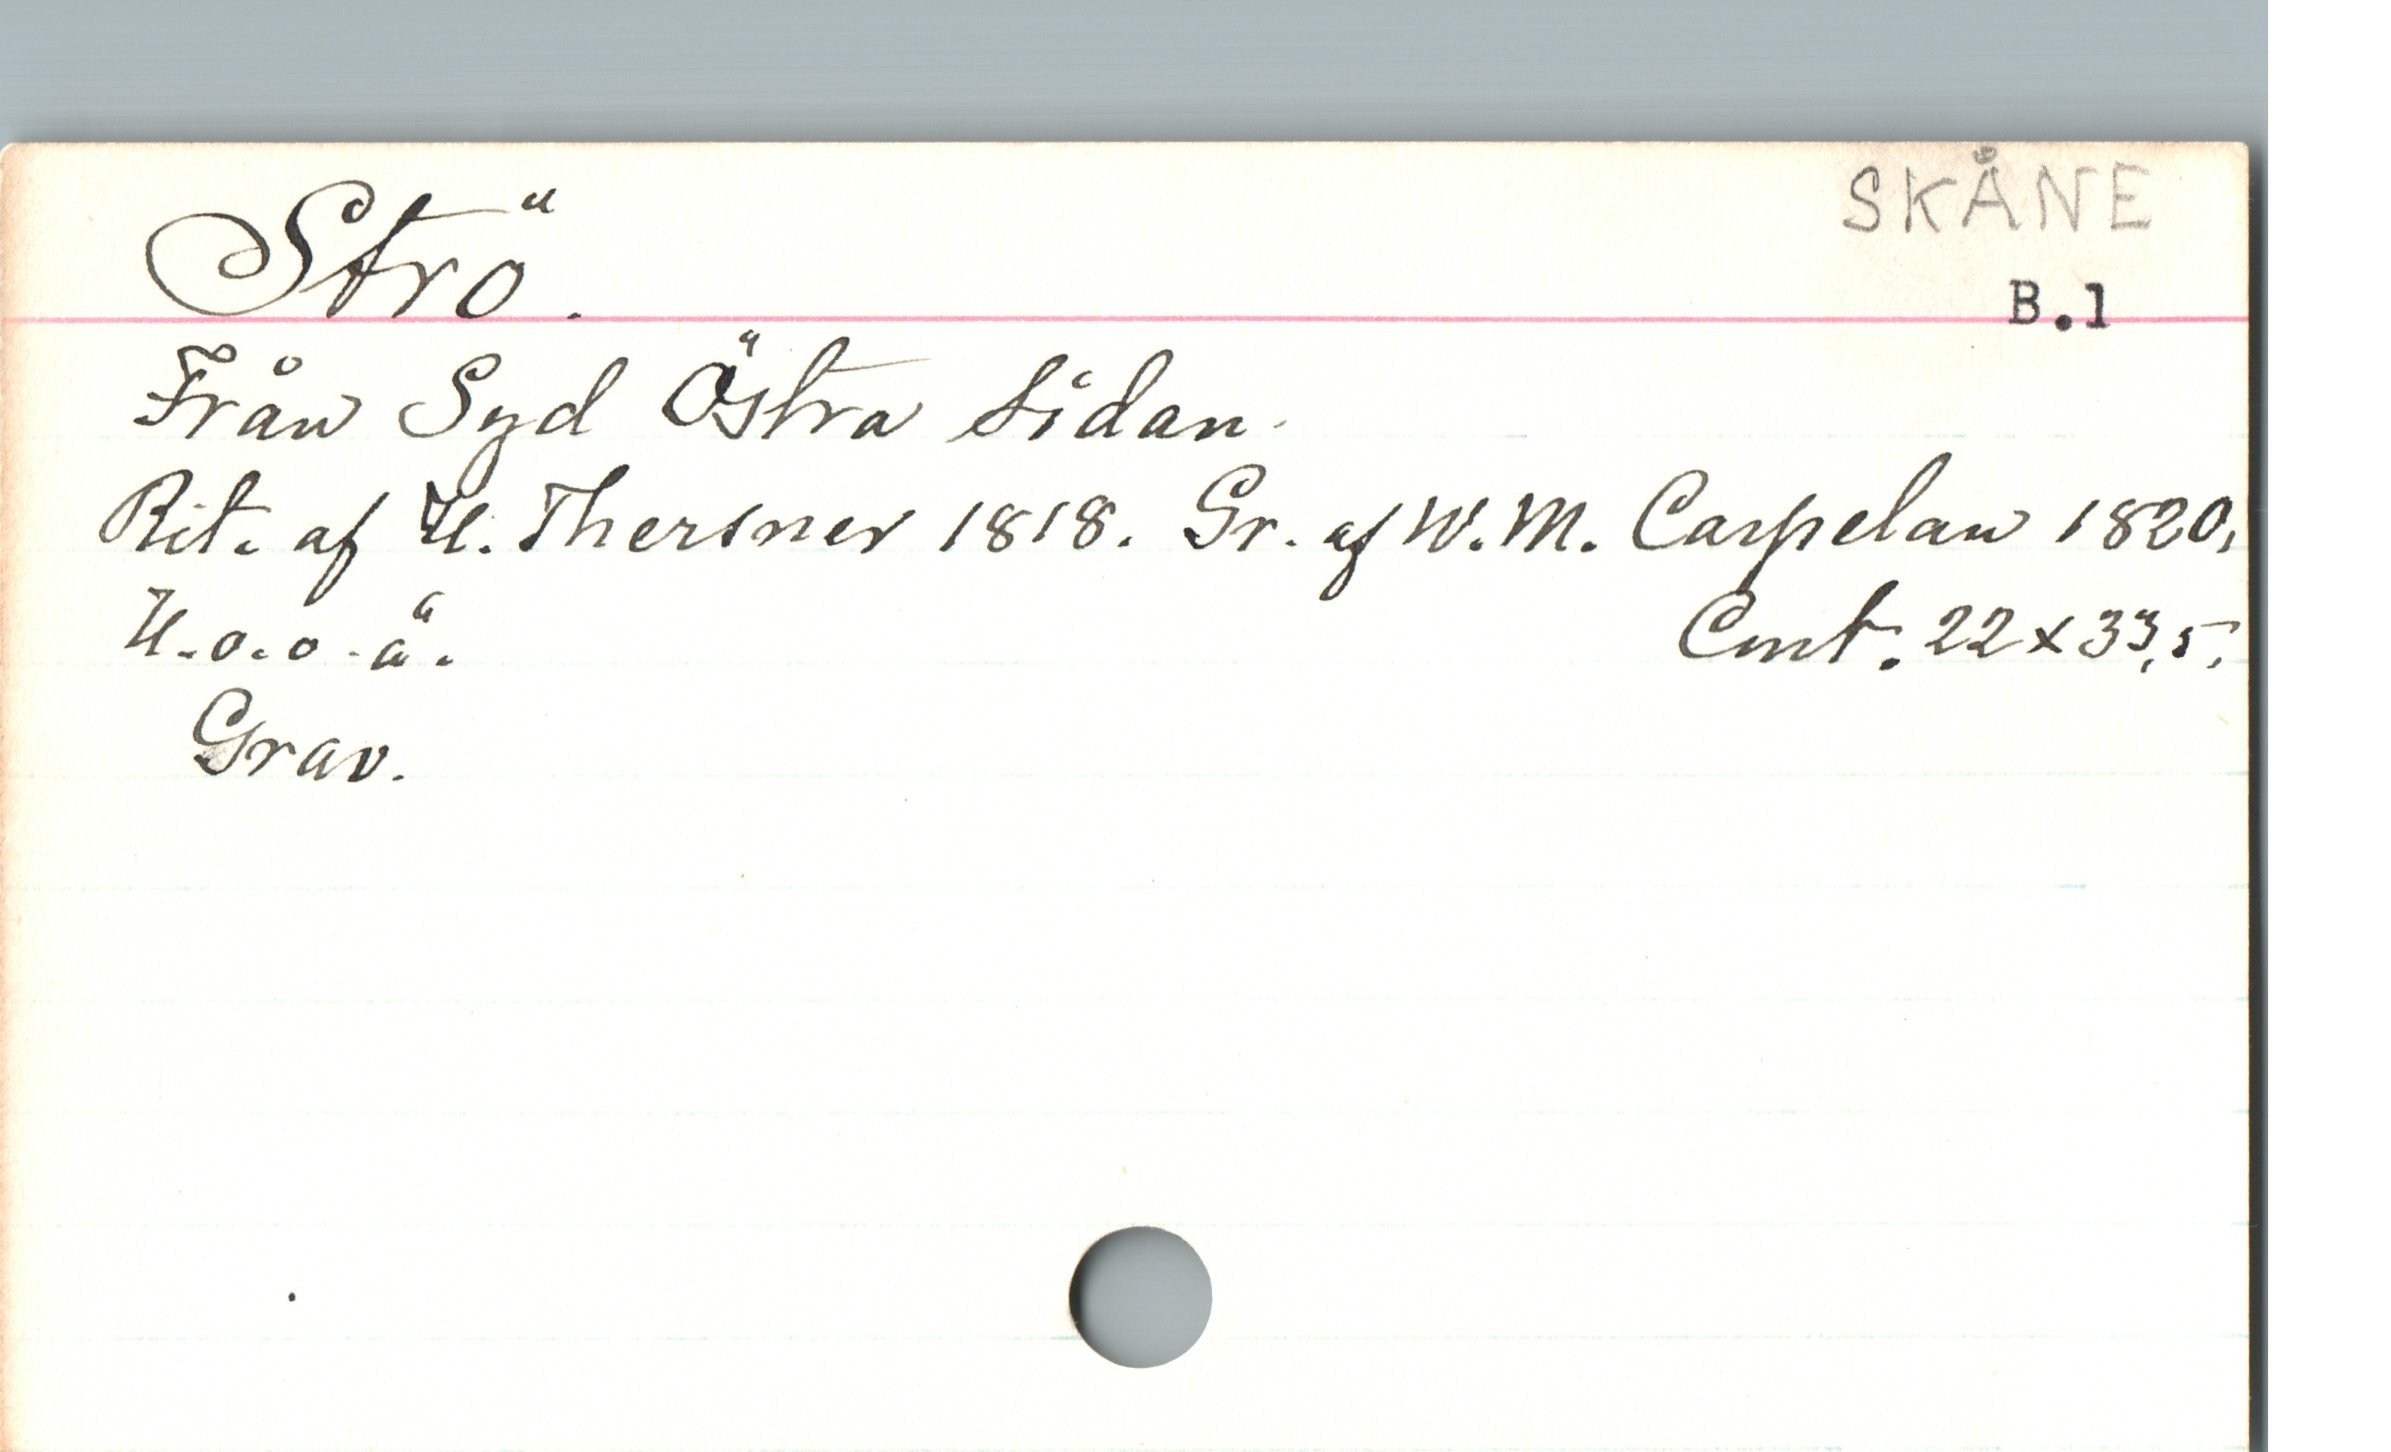 SKÅNE
Strö.
B.1
Från Syd Östra Sidan.
Rit. af U. Thersner 1818. Gr. af W. M. Carpelan 1820,
U. o. o. ä. Cmt. 22 x 33,5,
Grav.